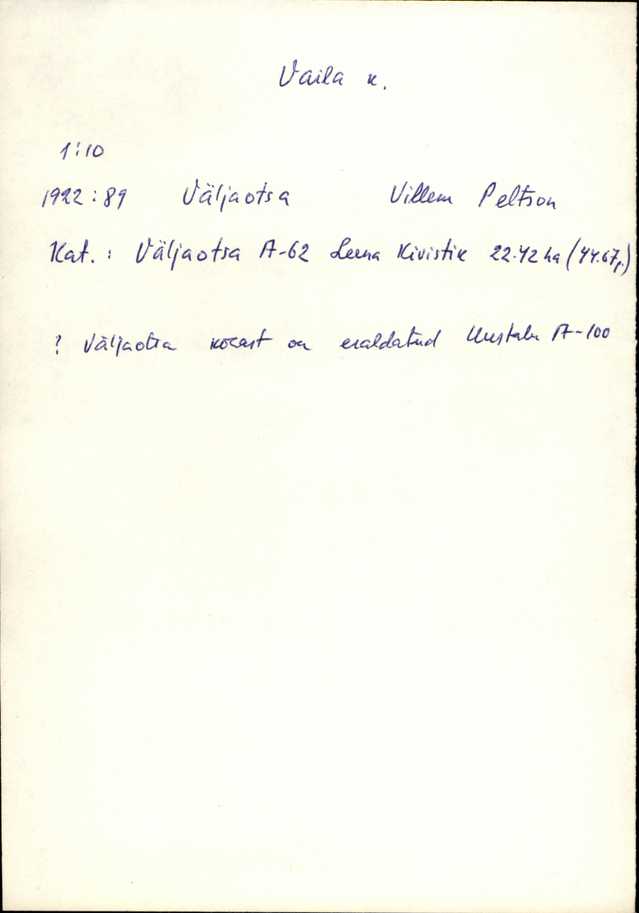 Vaila k.
1:10
1922:89 Väljaotsa Villem Peltson
Kat.: Väljaotsa A-62 Leena Kivistik 22.42 ha (44.67,)
? Väljaotsa kohast on eraldatud Uustalu A-100